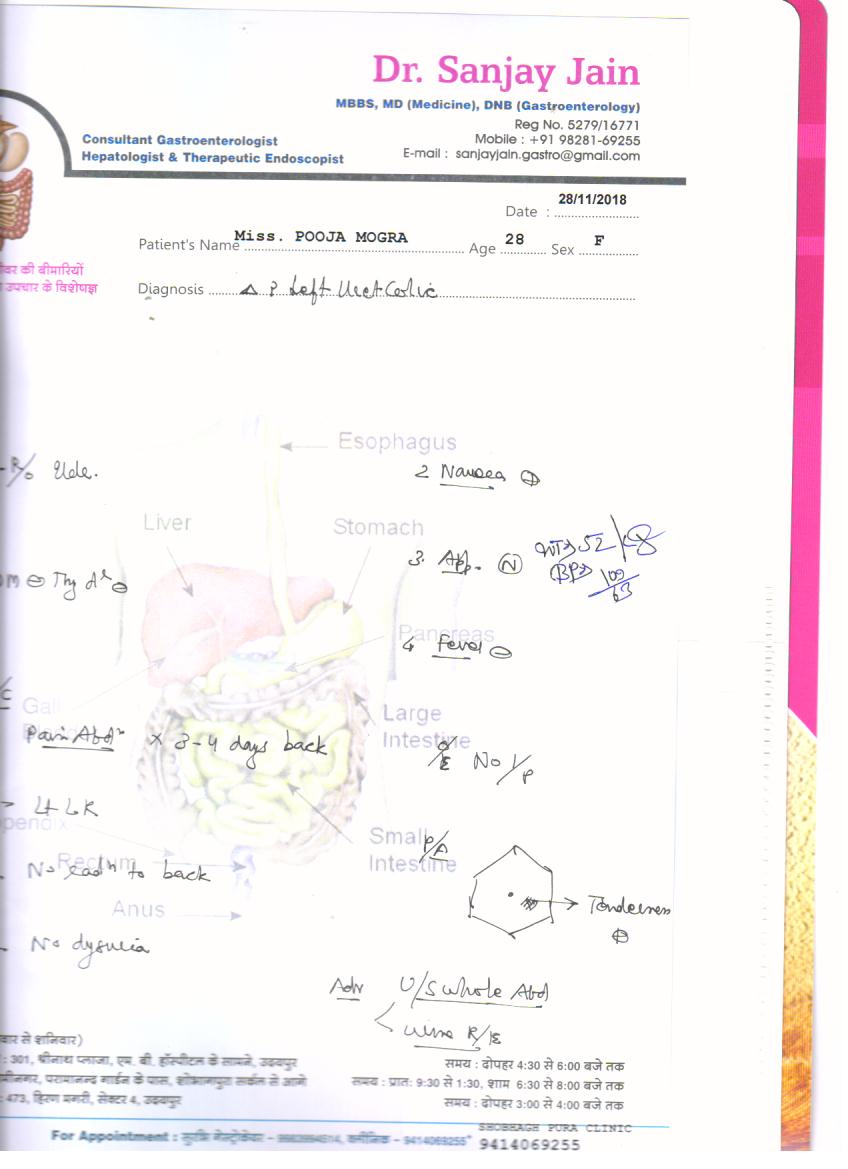 Dr. Sanjay Jain
MBBS, MD (Medicine), DNB (Gastroenterology)
Reg No. 5279/16771
Mobile : +91 98281-69255
E-mail : sanjayjain.gastro@gmail.com
Consultant Gastroenterologist
Hepatologist & Therapeutic Endoscopist
28/11/2018
Date :
Patient's Name Miss. POOJA MOGRA Age 28 Sex F
वर की बीमारियों
उपचार के विशेषज्ञ
Diagnosis Δ ? Left Uret Colic
Esophagus
R/o Udr.
2 Nausea ⊕
Liver
Stomach
3. App. Ⓝ
WT→ 52
BP→ 109/63
DM ⊖ Thy d^r ⊖
Pancreas
4 Fever ⊖
Gall
Large
Intestine
Pain Abd^n × 3-4 days back
O/E No I/P
→ Lt LR
pendix
Small
Intestine
P/A
Rectum
No rad^n to back
→ Tenderness
⊕
Anus
No dysuria
Adv U/S whole Abd
urine R/E
वार से शनिवार)
: 301, श्रीनाथ प्लाजा, एम. बी. हॉस्पीटल के सामने, उदयपुर
समय : दोपहर 4:30 से 6:00 बजे तक
मीनगर, परमानन्द गार्डन के पास, शोभागपुरा सर्कल से आगे
समय : प्रातः 9:30 से 1:30, शाम 6:30 से 8:00 बजे तक
: 473, हिरण मगरी, सेक्टर 4, उदयपुर
समय : दोपहर 3:00 से 4:00 बजे तक
For Appointment : सुरभि गेस्ट्रोकेयर - क्लीनिक - 9414069255
SHOBHAGH PURA CLINIC
9414069255